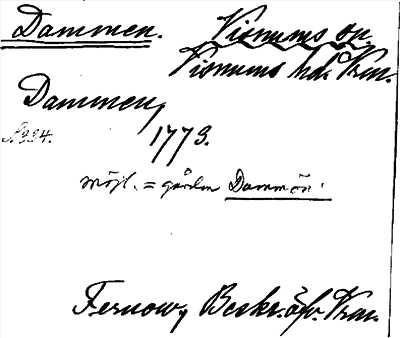 Dammen. Visnums sn.
Visnums hd. Vrm.
Dammen,
S. 234.
1773.
möjl. = gården Dammön.
Fernow, Beskr. öfv. Vrm.